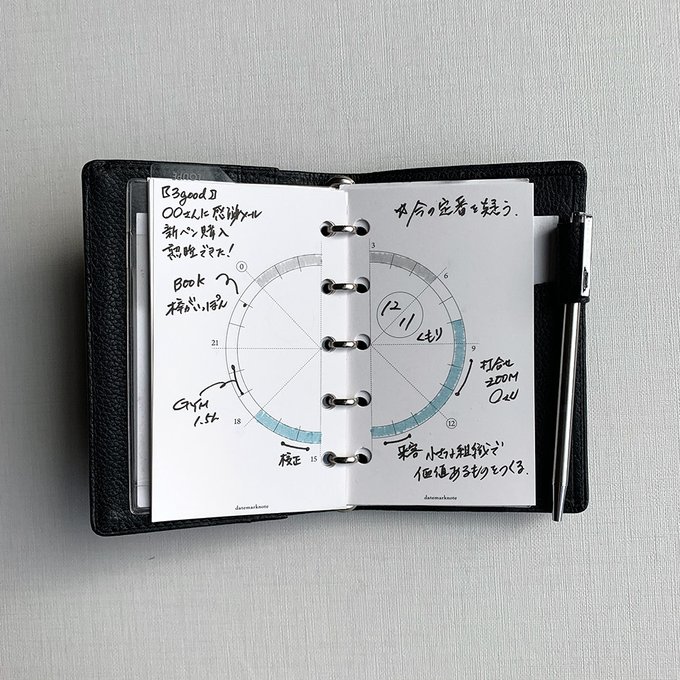 【3good】
○○さんに感謝メール
新ペン購入
早起できた!
Book
本がいっぽん
0
21
GYM
1.5h
18
校正
15
datemarknote
☆今の定番を疑う.
3
6
12
11
くもり
9
打合せ
ZOOM
12
来客
小さな組織で
価値あるものをつくる.
datemarknote